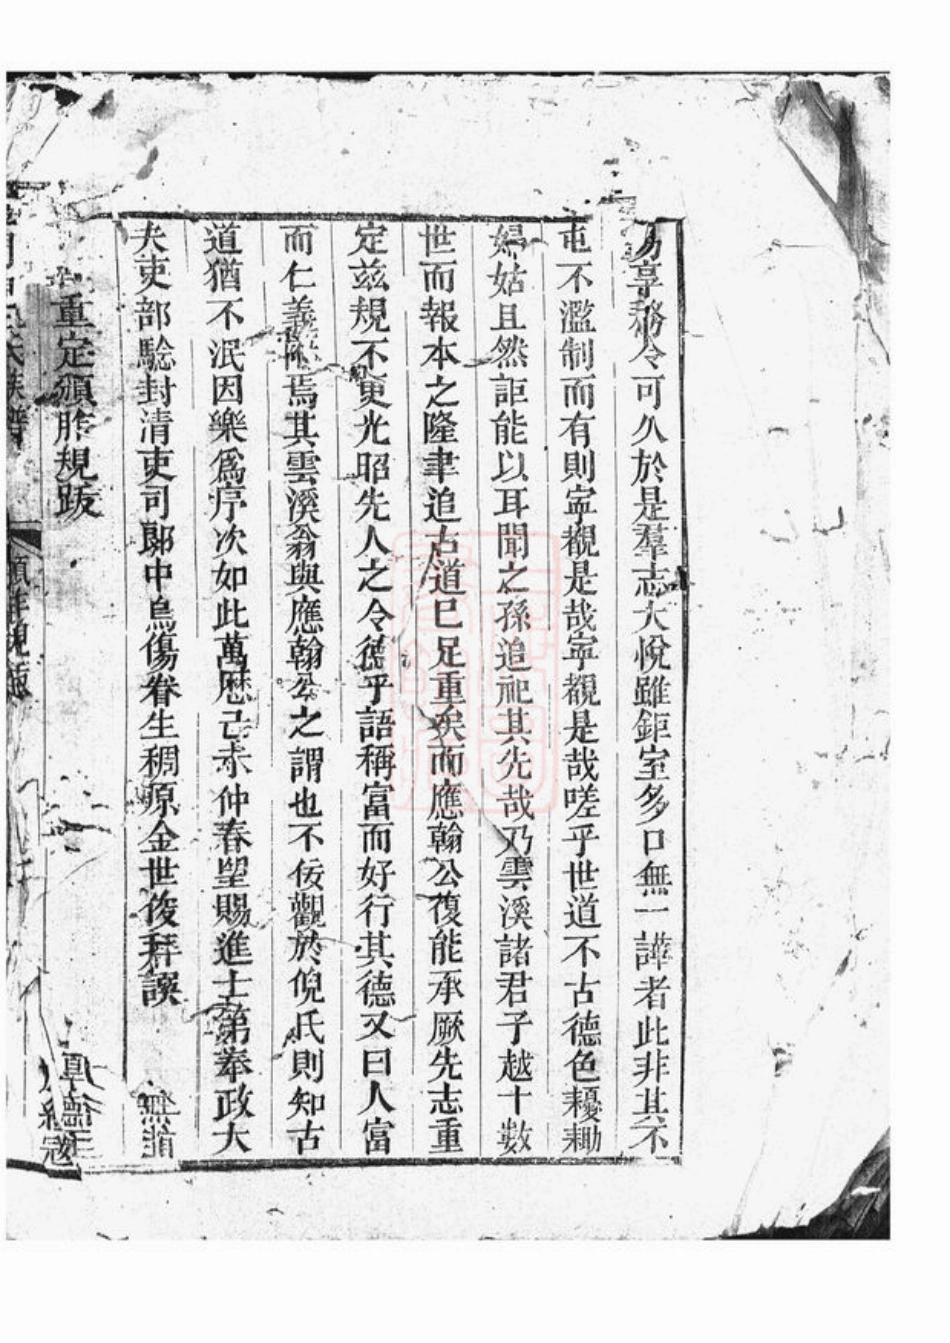 易享務令可久於是羣志大悅雖鉅室多口無一譁者此非其不
屯不濫制而有則寧覩是哉寧覩是哉嗟乎世道不古德色耰鋤
婦姑且然詎能以耳聞之孫追祀其先哉乃雲溪諸君子越十數
世而報本之隆聿追古道已足重矣而應翰公復能承厥先志重
定兹規不更光昭先人之令德乎語稱富而好行其德又曰人富
而仁義附焉其雲溪翁與應翰公之謂也不佞觀於倪氏則知古
道猶不泯因樂爲序次如此萬歷己未仲春望賜進士第奉政大
夫吏部驗封清吏司郎中烏傷眷生稠原金世俊拜譔
重定頒胙規跋
氏族譜
頒胙規